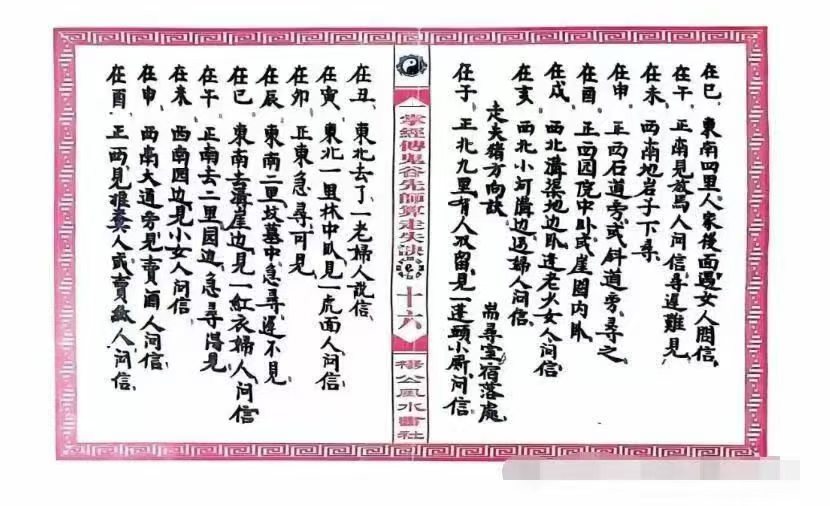 在巳 東南四里人家後面遇女人問信
在午 正南見放馬人問信尋遲難見
在未 西南地岩子下尋
在申 正西石道旁或斜道旁尋之
在酉 正西园院中卧或崖圈内卧
在戌 西北溝渠地边卧逢老少女人問信
在亥 西北小河溝边遇婦人問信
走失猪方向訣 耑尋室宿落處
在子 正北九里有人收留見一蓬頭小厮问信
掌經傳鬼谷先師算走失訣 十六
楊公風水書社
在丑 東北去了一老婦人說信
在寅 東北一里林中卧見一虎面人问信
在卯 正東急尋可見
在辰 東南二里坟墓中急尋遲不見
在巳 東南去溝崖边見一紅衣婦人问信
在午 正南去二里园边急尋得見
在未 西南四边見小女人问信
在申 西南大道旁見賣酒人问信
在酉 正西見推糞人或賣 人问信